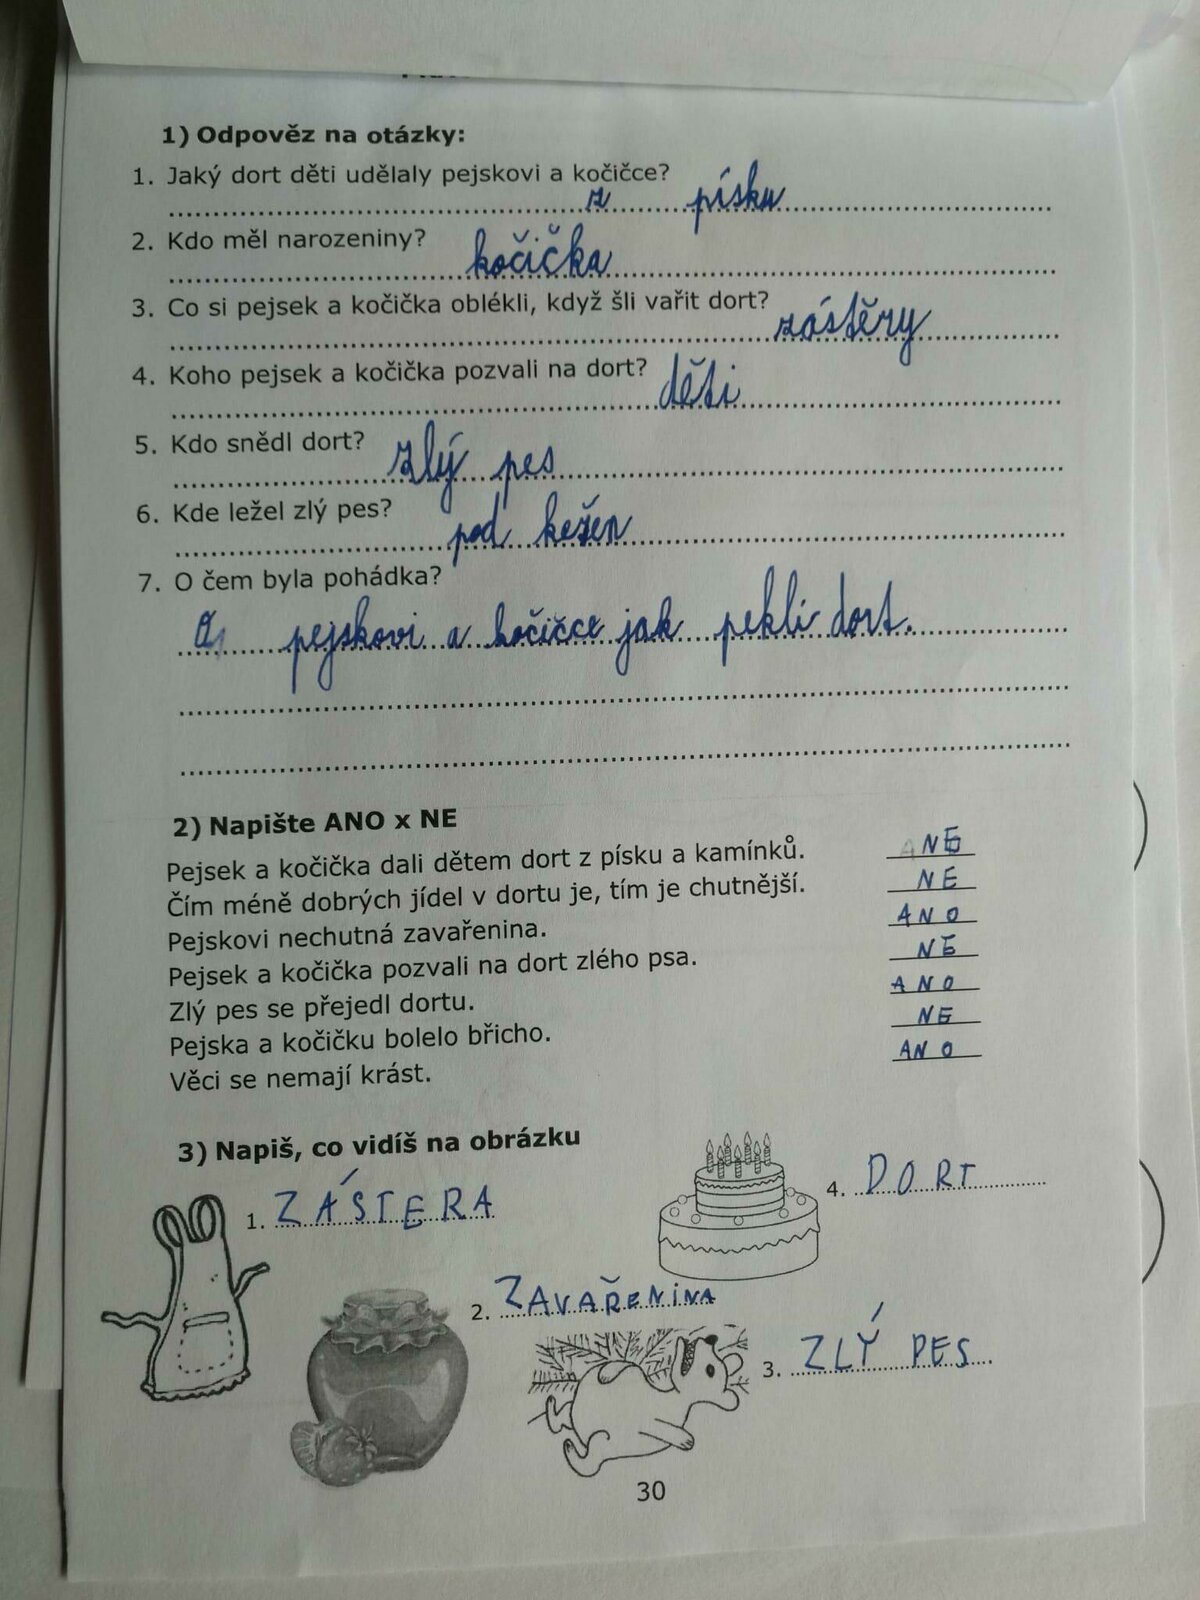 1) Odpověz na otázky:
1. Jaký dort děti udělaly pejskovi a kočičce?
z písku
2. Kdo měl narozeniny?
kočička
3. Co si pejsek a kočička oblékli, když šli vařit dort?
zástěry
4. Koho pejsek a kočička pozvali na dort?
děti
5. Kdo snědl dort?
zlý pes
6. Kde ležel zlý pes?
pod kežen
7. O čem byla pohádka?
O pejskovi a kočičce jak pekli dort.
2) Napište ANO x NE
Pejsek a kočička dali dětem dort z písku a kamínků. NE
Čím méně dobrých jídel v dortu je, tím je chutnější. NE
Pejskovi nechutná zavařenina. ANO
Pejsek a kočička pozvali na dort zlého psa. NE
Zlý pes se přejedl dortu. ANO
Pejska a kočičku bolelo břicho. NE
Věci se nemají krást. ANO
3) Napiš, co vidíš na obrázku
1. ZÁSTERA
4. DORT
2. ZAVAŘENINA
3. ZLÝ PES
30